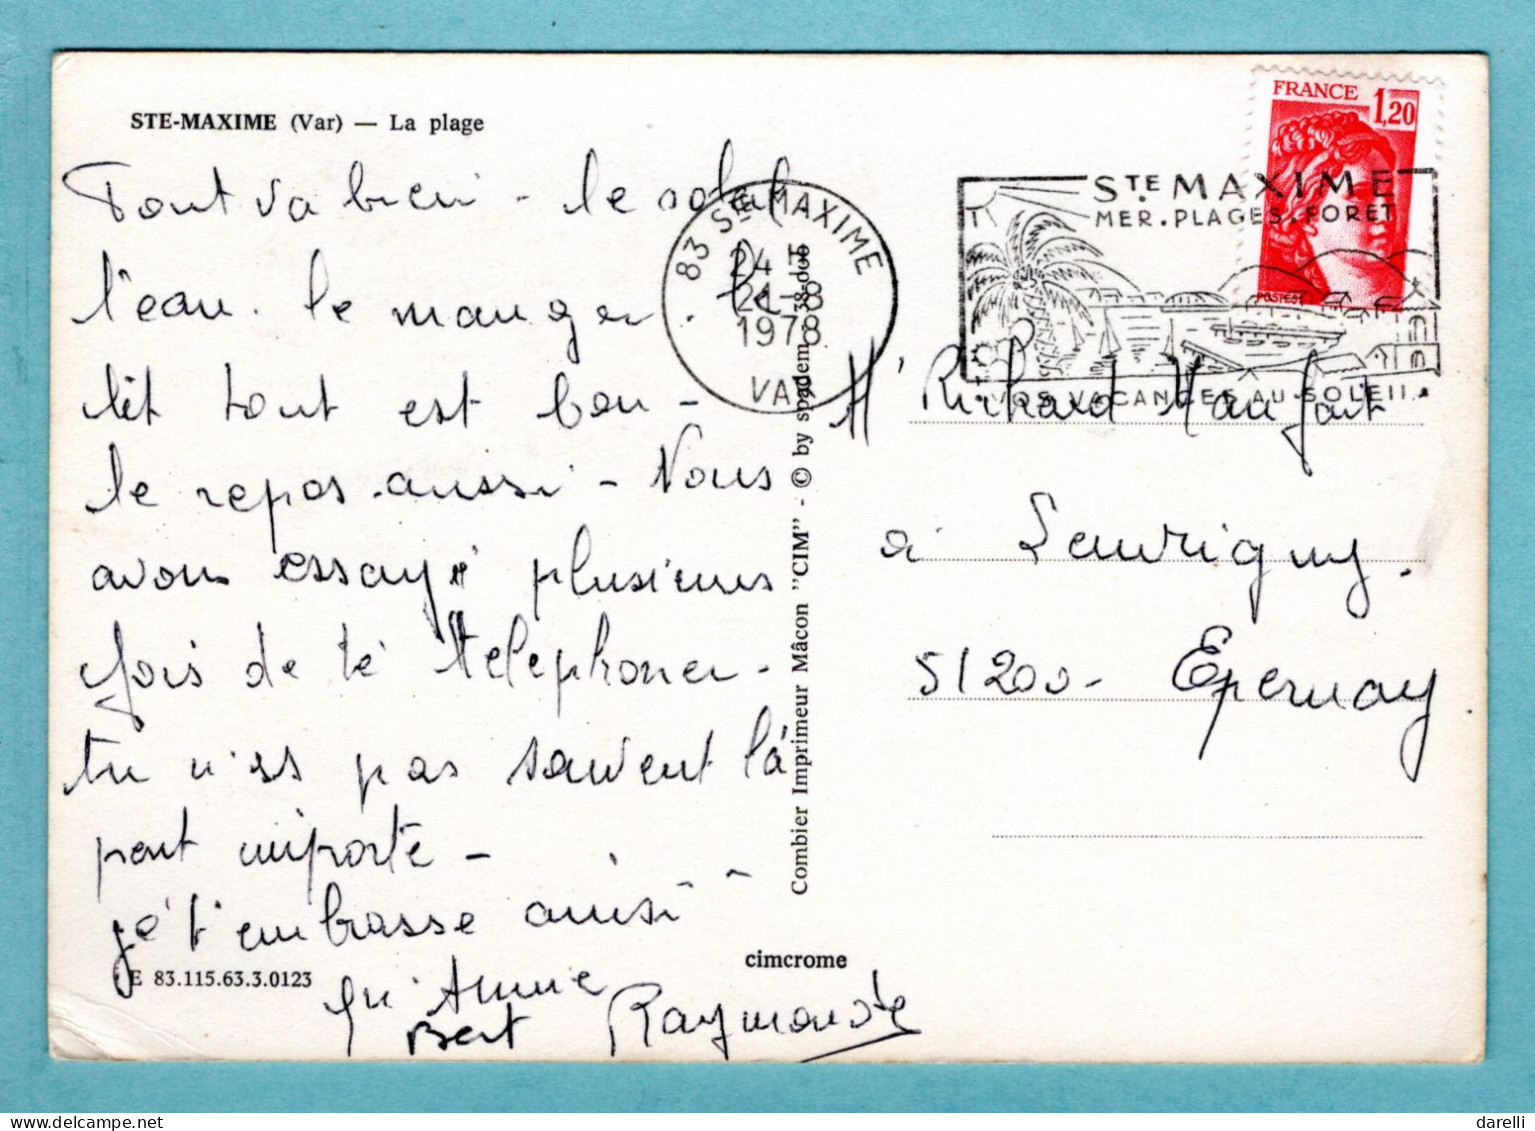 STE-MAXIME (Var) — La plage
Tout va bien - le soleil
l'eau. le manger. le
lit tout est bon -
le repos aussi - Nous
avons essayé plusieurs
fois de te téléphoner -
tu n'es pas souvent là
peut importe -
je t'embrasse ainsi
qu'Annie
Bert Raymonde
E 83.115.63.3.0123
cimcrome
Combier Imprimeur Mâcon "CIM" - © by spadem
83 STE MAXIME
24 H
24-8
1978
VAR
STE MAXIME
MER. PLAGES. FORET
VOS VACANCES AU SOLEIL
FRANCE 1,20
POSTES
Mr Richard Maufont
à Leuvrigny.
51200 - Epernay.
darelli